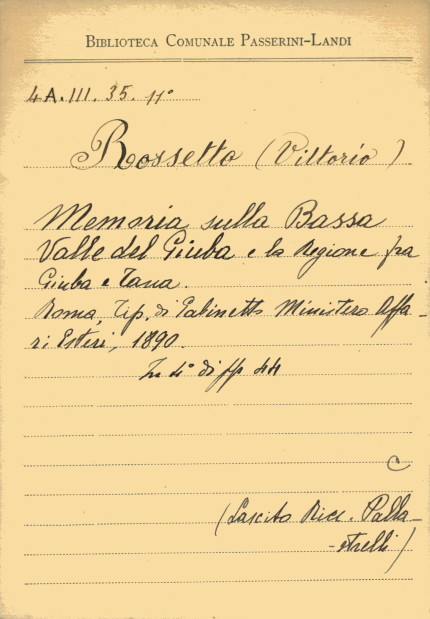 BIBLIOTECA COMUNALE PASSERINI-LANDI
4A.III. 35. 11°
Rossetto (Vittorio)
Memoria sulla Bassa
Valle del Giuba e la Regione fra
Giuba e Tana.
Roma, Tip. di Gabinetto Ministero Affa-
ri Esteri, 1890.
In 4° di pp 44
C
(Lascito Ricc. Palla-
-strelli)